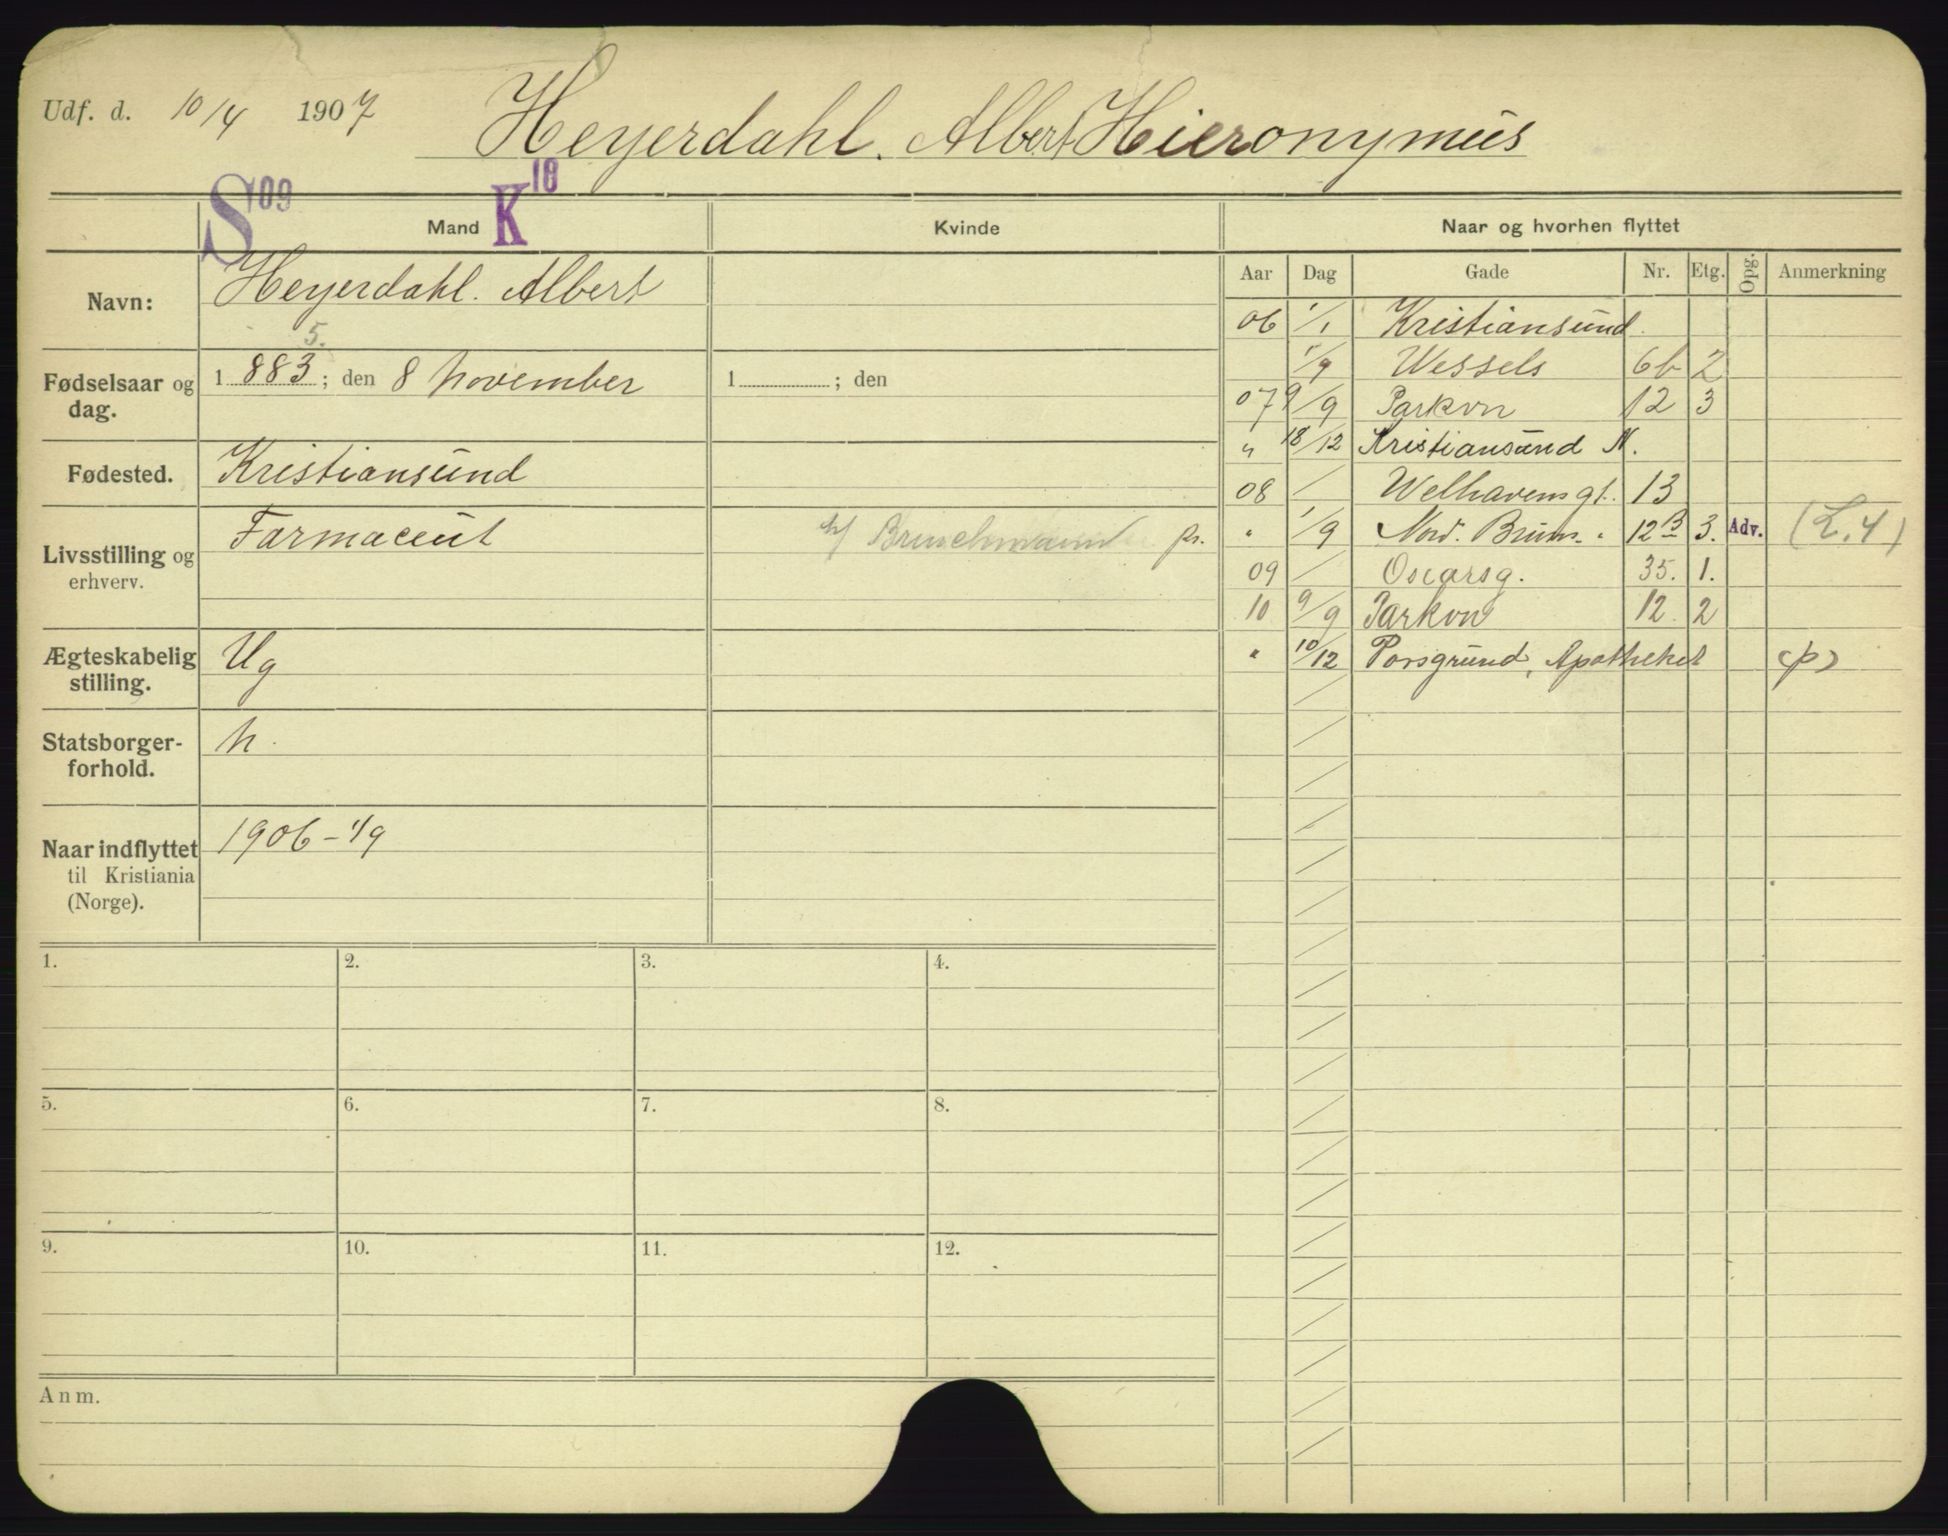 Udf. d. 10/4 1907 Heyerdahl. Albert Hieronymus
S 09 Mand K 10 Kvinde Naar og hvorhen flyttet
Navn: Heyerdahl. Albert
5.
Fødselsaar og dag. 1 883; den 8 November 1 ; den
Fødested. Kristiansund
Livsstilling og erhverv. Farmaceut fr.
Ægteskabelig stilling. Ug
Statsborgerforhold. N.
Naar indflyttet til Kristiania (Norge). 1906 - 1/9
Aar Dag Gade Nr. Etg. Opg. Anmerkning
06 1/1 Kristiansund.
1/9 Wessels 6b 2
07 9/9 Parkvn 12 3
" 18/12 Kristiansund N.
08 / Welhavens gt. 13
" 1/9 Nord. Brun. " 12 B 3. Adv. (L. 4)
09 / Oscarsg. 35. 1.
10 9/9 Parkvn 12. 2
" 10/12 Porsgrund, Apotheket (p)
1. 2. 3. 4.
5. 6. 7. 8.
9. 10. 11. 12.
Anm.